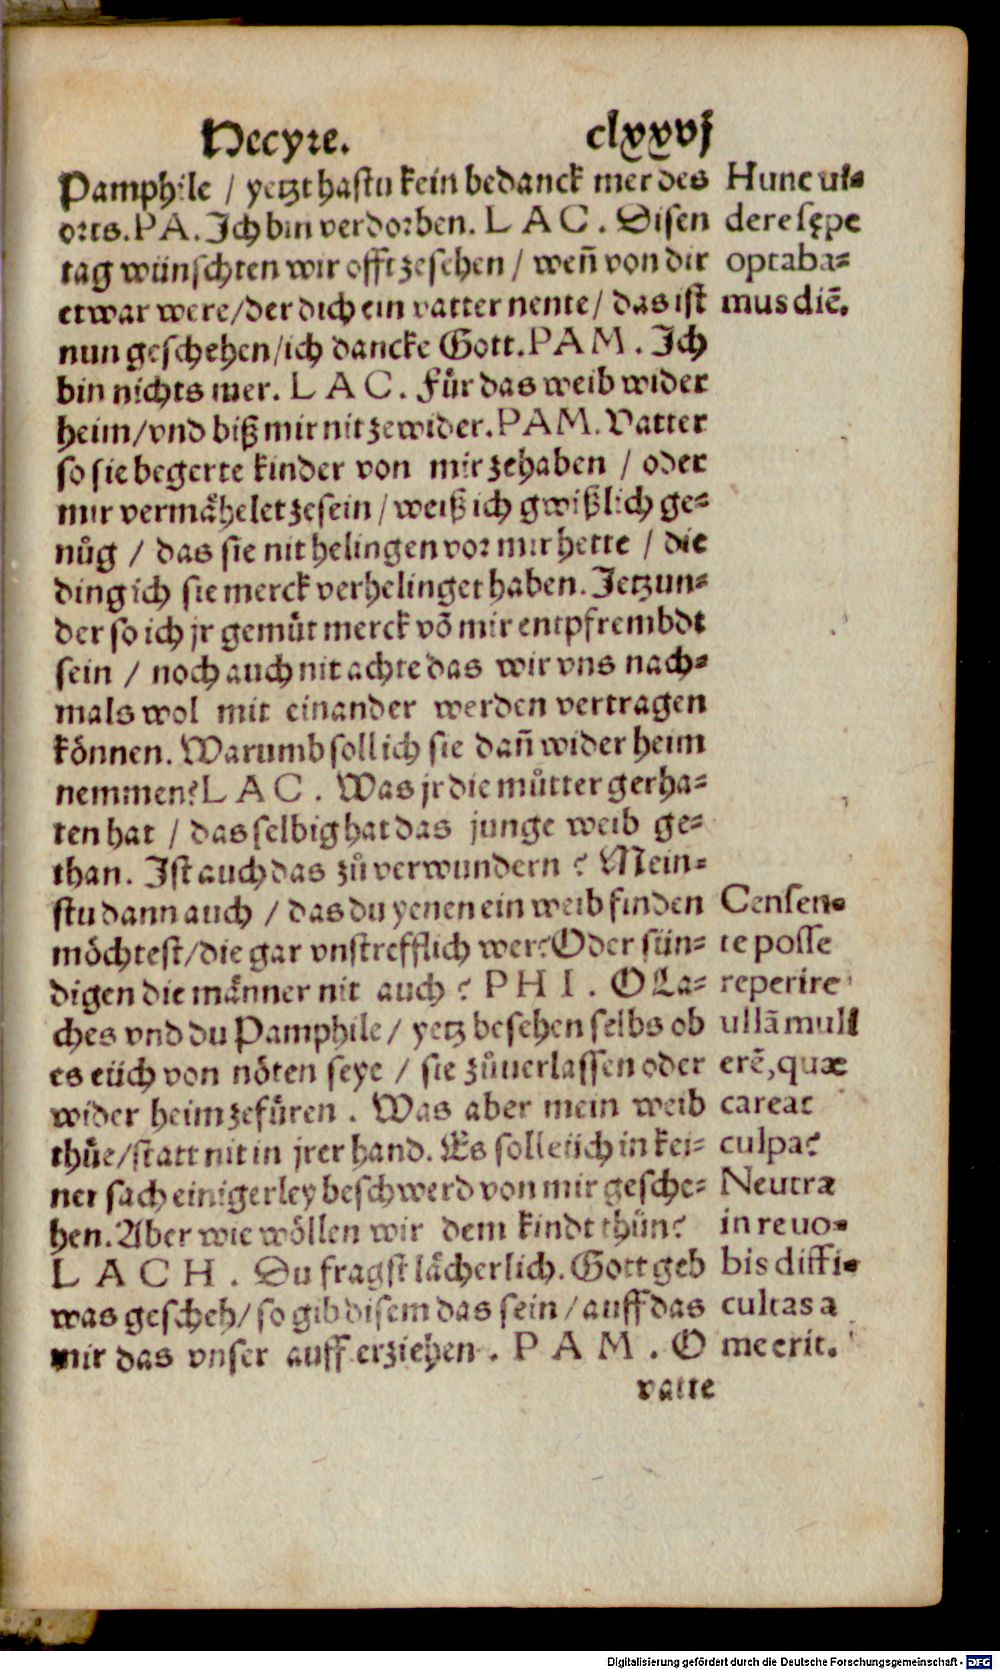 Hecyre.
clxxvj
Pamphile / yetzt hastu kein bedanck mer des
orts. PA. Jch bin verdorben. L A C. Disen
tag wünschten wir offt zesehen / weñ von dir
etwar were/der dich ein vatter nente/ das ist
nun geschehen/ich dancke Gott. PAM. Jch
bin nichts mer. L A C. Fůr das weib wider
heim/vnd biß mir nit zewider. PAM. Vatter
so sie begerte kinder von mir zehaben / oder
mir vermåhelet zesein / weiß ich gwißlich ge-
nůg / das sie nit helingen vor mir hette / die
ding ich sie merck verhelinget haben. Jetzun-
der so ich jr gemůt merck võ mir entpfrembdt
sein / noch auch nit achte das wir vns nach-
mals wol mit einander werden vertragen
können. Warumb soll ich sie dañ wider heim
nemmen? L A C. Was jr die můtter gerha-
ten hat / das selbig hat das junge weib ge-
than. Jst auch das zů verwundern? Mein-
stu dann auch / das du yenen ein weib finden
möchtest/die gar vnstrefflich wer? Oder sün-
digen die männer nit auch? P H I. O La-
ches vnd du Pamphile/ yetz besehen selbs ob
es eüch von nöten seye / sie zůuerlassen oder
wider heim zefůren. Was aber mein weib
thůe/statt nit in jrer hand. Es soll eüch in kei-
ner sach einigerley beschwerd von mir gesche-
hen. Aber wie wöllen wir dem kindt thůn?
L A C H. Du fragst lächerlich. Gott geb
was gescheh/ so gib disem das sein / auff das
mir das vnser auff erziehen. P A M. O
vatte
Hunc ui-
dere sępe
optaba-
mus diē.
Censen-
te posse
reperire
ullā muli
erē, quæ
careat
culpa?
Neutra
in re uo-
bis diffi-
cultas a
me erit.
Digitalisierung gefördert durch die Deutsche Forschungsgemeinschaft - DFG